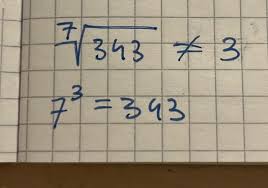 ⁷√343 ≠ 3
7³ = 343